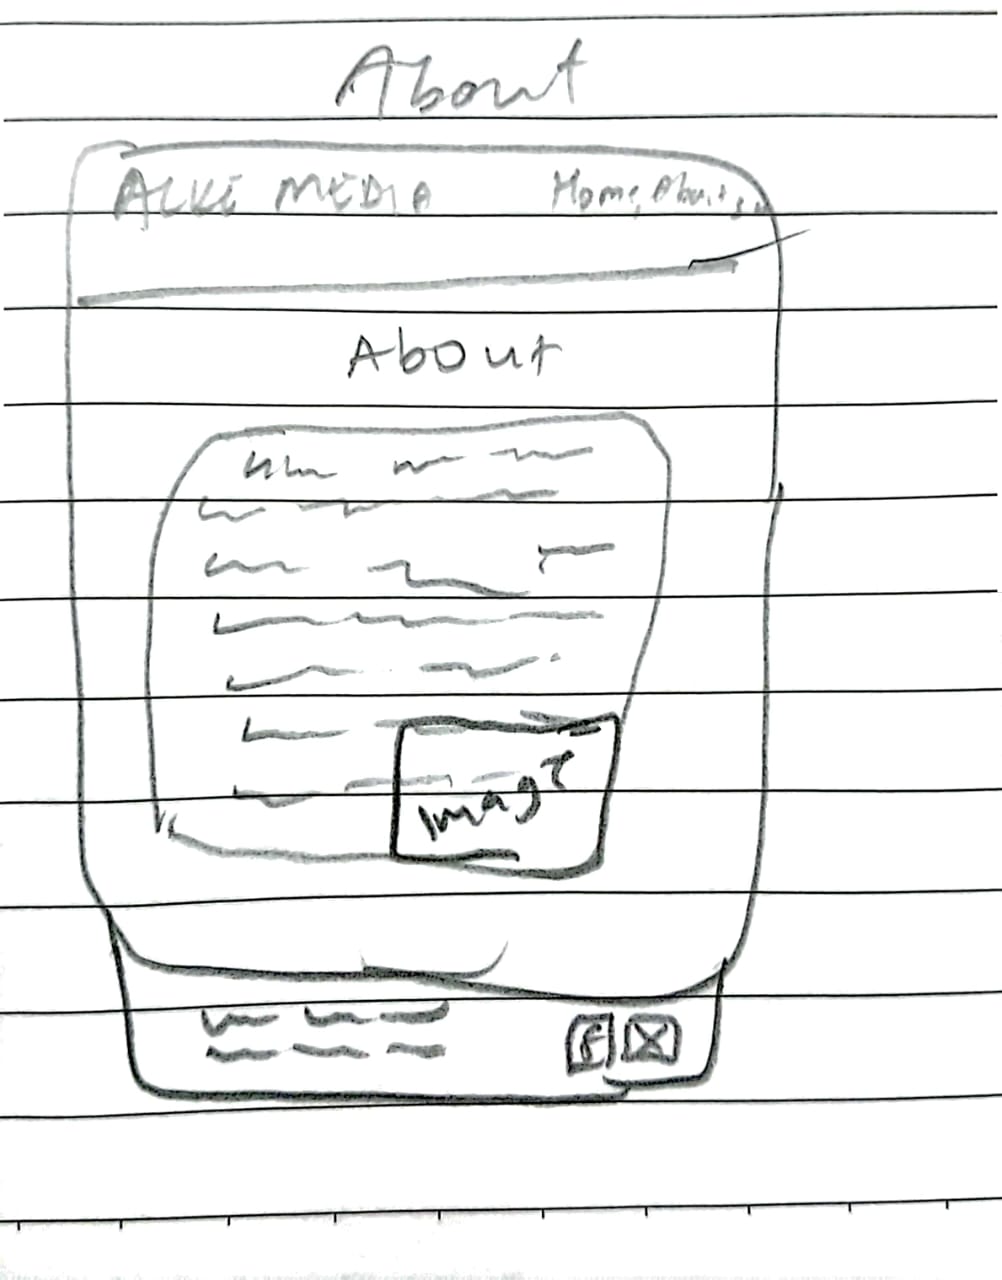 About
ALKE MEDIA Home, About,
About
Image
f X